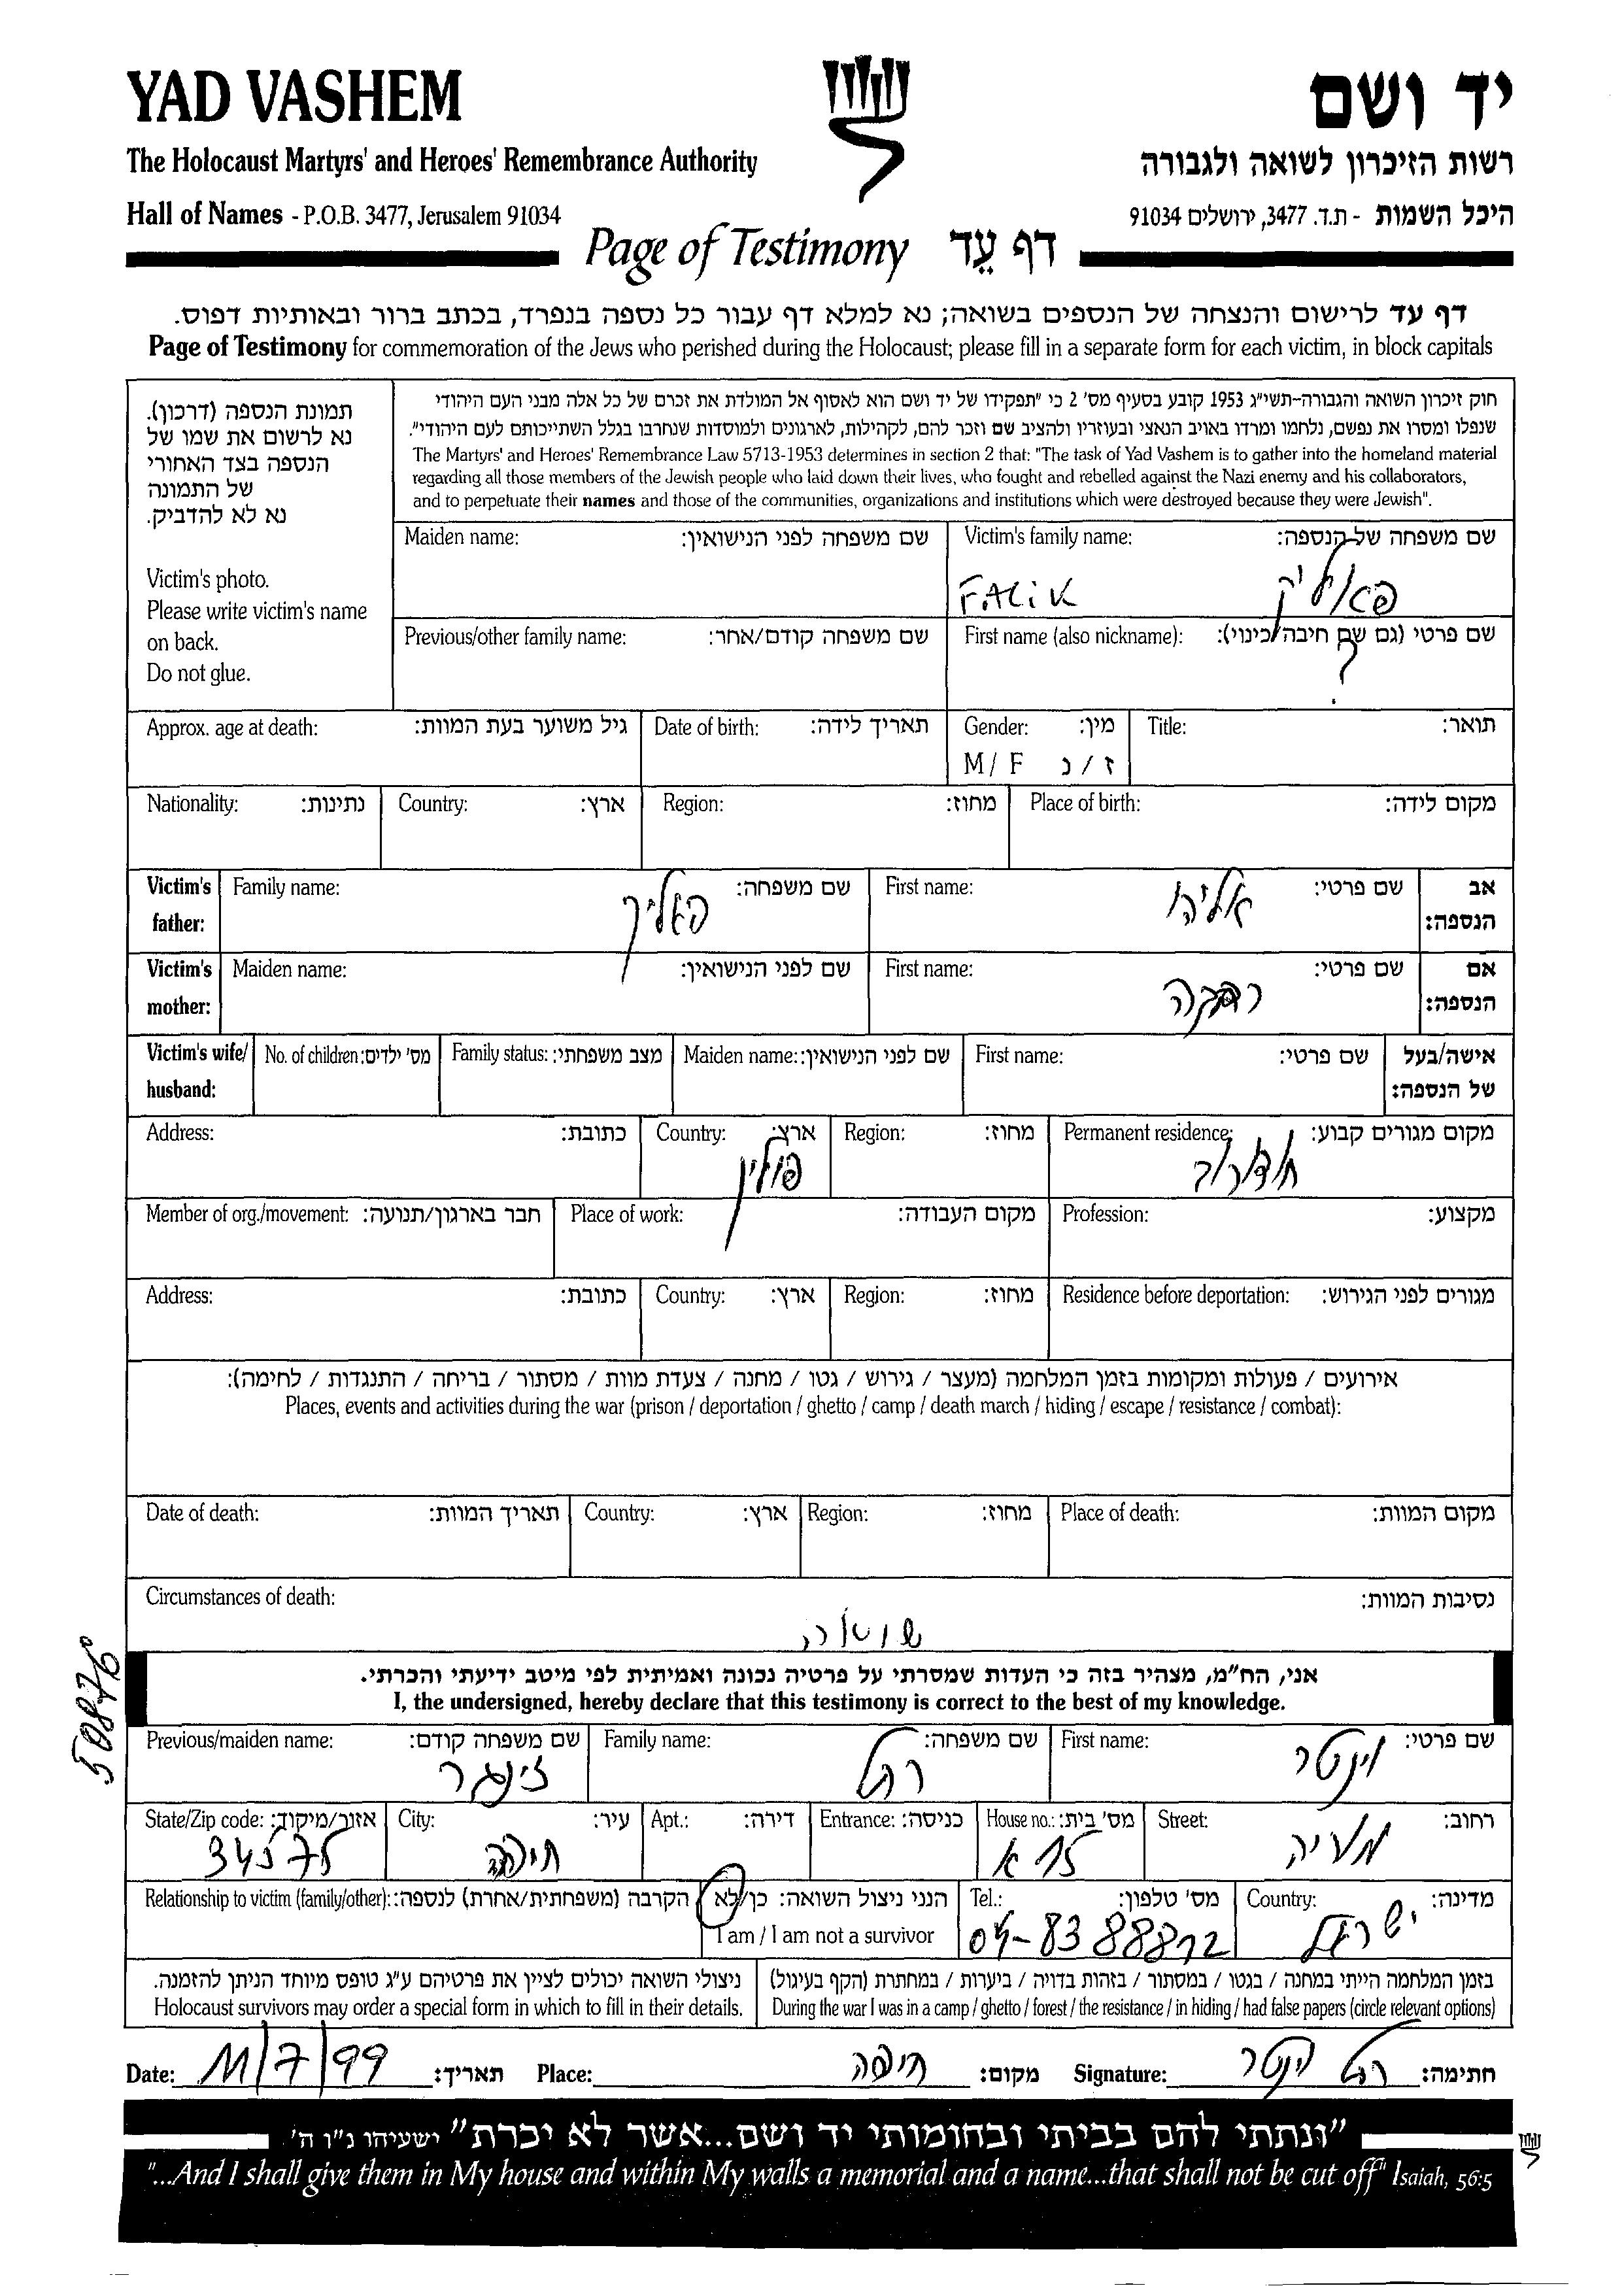 YAD VASHEM
יד ושם
The Holocaust Martyrs' and Heroes' Remembrance Authority
רשות הזיכרון לשואה ולגבורה
Hall of Names - P.O.B. 3477, Jerusalem 91034
היכל השמות - ת.ד. 3477, ירושלים 91034
Page of Testimony דף עֵד
דף עד לרישום והנצחה של הנספים בשואה; נא למלא דף עבור כל נספה בנפרד, בכתב ברור ובאותיות דפוס.
Page of Testimony for commemoration of the Jews who perished during the Holocaust; please fill in a separate form for each victim, in block capitals
תמונת הנספה (דרכון).
נא לרשום את שמו של
הנספה בצד האחורי
של התמונה
נא לא להדביק.
Victim's photo.
Please write victim's name
on back.
Do not glue.
חוק זיכרון השואה והגבורה-תשי"ג 1953 קובע בסעיף מס' 2 כי "תפקידו של יד ושם הוא לאסוף אל המולדת את זכרם של כל אלה מבני העם היהודי
שנפלו ומסרו את נפשם, נלחמו ומרדו באויב הנאצי ובעוזריו ולהציב שם וזכר להם, לקהילות, לארגונים ולמוסדות שנחרבו בגלל השתייכותם לעם היהודי".
The Martyrs' and Heroes' Remembrance Law 5713-1953 determines in section 2 that: "The task of Yad Vashem is to gather into the homeland material
regarding all those members of the Jewish people who laid down their lives, who fought and rebelled against the Nazi enemy and his collaborators,
and to perpetuate their names and those of the communities, organizations and institutions which were destroyed because they were Jewish".
Maiden name: שם משפחה לפני הנישואין: Victim's family name: שם משפחה של הנספה:
FALiK פאליק
Previous/other family name: שם משפחה קודם/אחר: First name (also nickname): שם פרטי (גם שם חיבה/כינוי):
?
Approx. age at death: גיל משוער בעת המוות: Date of birth: תאריך לידה: Gender: מין: Title: תואר:
M / F ז / נ
Nationality: נתינות: Country: ארץ: Region: מחוז: Place of birth: מקום לידה:
Victim's father: Family name: שם משפחה: First name: שם פרטי: אב הנספה:
פאליק אליהו
Victim's mother: Maiden name: שם לפני הנישואין: First name: שם פרטי: אם הנספה:
רבקה
Victim's wife/ husband: No. of children: מס' ילדים: Family status: מצב משפחתי: Maiden name: שם לפני הנישואין: First name: שם פרטי: אישה/בעל של הנספה:
Address: כתובת: Country: ארץ: Region: מחוז: Permanent residence: מקום מגורים קבוע:
פולין
Member of org./movement: חבר בארגון/תנועה: Place of work: מקום העבודה: Profession: מקצוע:
Address: כתובת: Country: ארץ: Region: מחוז: Residence before deportation: מגורים לפני הגירוש:
אירועים / פעולות ומקומות בזמן המלחמה (מעצר / גירוש / גטו / מחנה / צעדת מוות / מסתור / בריחה / התנגדות / לחימה):
Places, events and activities during the war (prison / deportation / ghetto / camp / death march / hiding / escape / resistance / combat):
Date of death: תאריך המוות: Country: ארץ: Region: מחוז: Place of death: מקום המוות:
Circumstances of death: נסיבות המוות:
שואה
אני, הח"מ, מצהיר בזה כי העדות שמסרתי על פרטיה נכונה ואמיתית לפי מיטב ידיעתי והכרתי.
I, the undersigned, hereby declare that this testimony is correct to the best of my knowledge.
Previous/maiden name: שם משפחה קודם: Family name: שם משפחה: First name: שם פרטי:
זינגר רחל וינטר
State/Zip code: אזור/מיקוד: City: עיר: Apt.: דירה: Entrance: כניסה: House no.: מס' בית: Street: רחוב:
34575 חיפה 15 א
Relationship to victim (family/other): הקרבה (משפחתית/אחרת) לנספה: הנני ניצול השואה: כן/לא Tel.: מס' טלפון: Country: מדינה:
I am / I am not a survivor 04-8388812 ישראל
ניצולי השואה יכולים לציין את פרטיהם ע"ג טופס מיוחד הניתן להזמנה. בזמן המלחמה הייתי במחנה / בגטו / במסתור / בזהות בדויה / ביערות / במחתרת (הקף בעיגול)
Holocaust survivors may order a special form in which to fill in their details. During the war I was in a camp / ghetto / forest / the resistance / in hiding / had false papers (circle relevant options)
Date: 11/7/99 תאריך: Place: חיפה מקום: Signature: רחל וינטר חתימה:
"ונתתי להם בביתי ובחומותי יד ושם...אשר לא יכרת" ישעיהו נ"ו ה'
"...And I shall give them in My house and within My walls a memorial and a name...that shall not be cut off" Isaiah, 56:5